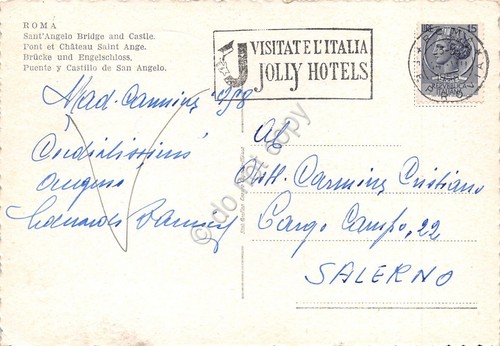 ROMA
Sant'Angelo Bridge and Castle.
Pont et Château Saint Ange.
Brücke und Engelschloss.
Puente y Castillo de San Angelo.
VISITATE L'ITALIA
JOLLY HOTELS
LIRE 15
Cordialissimi
auguri
Al
Dott. Carmine Cristiano
Largo Campo, 22
SALERNO
© do not copy